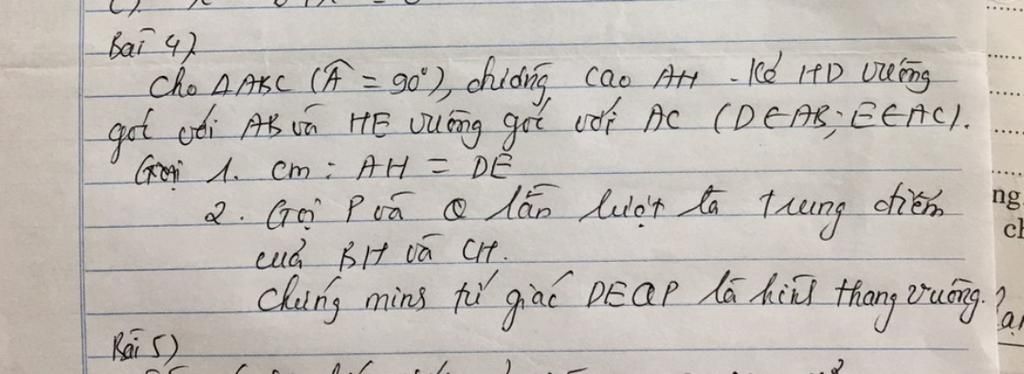 Bài 4)
Cho ΔABC (Â = 90°), đường cao AH - Kẻ HD vuông
gót với AB và HE vuông gót với AC (D∈AB; E∈AC).
Gọi 1. cm : AH = DE
2. Gọi P và Q lần lượt là trung điểm
cuả BH và CH.
Chứng minh tứ giác DEQP là hình thang vuông.
Bài 5)
ng
ch